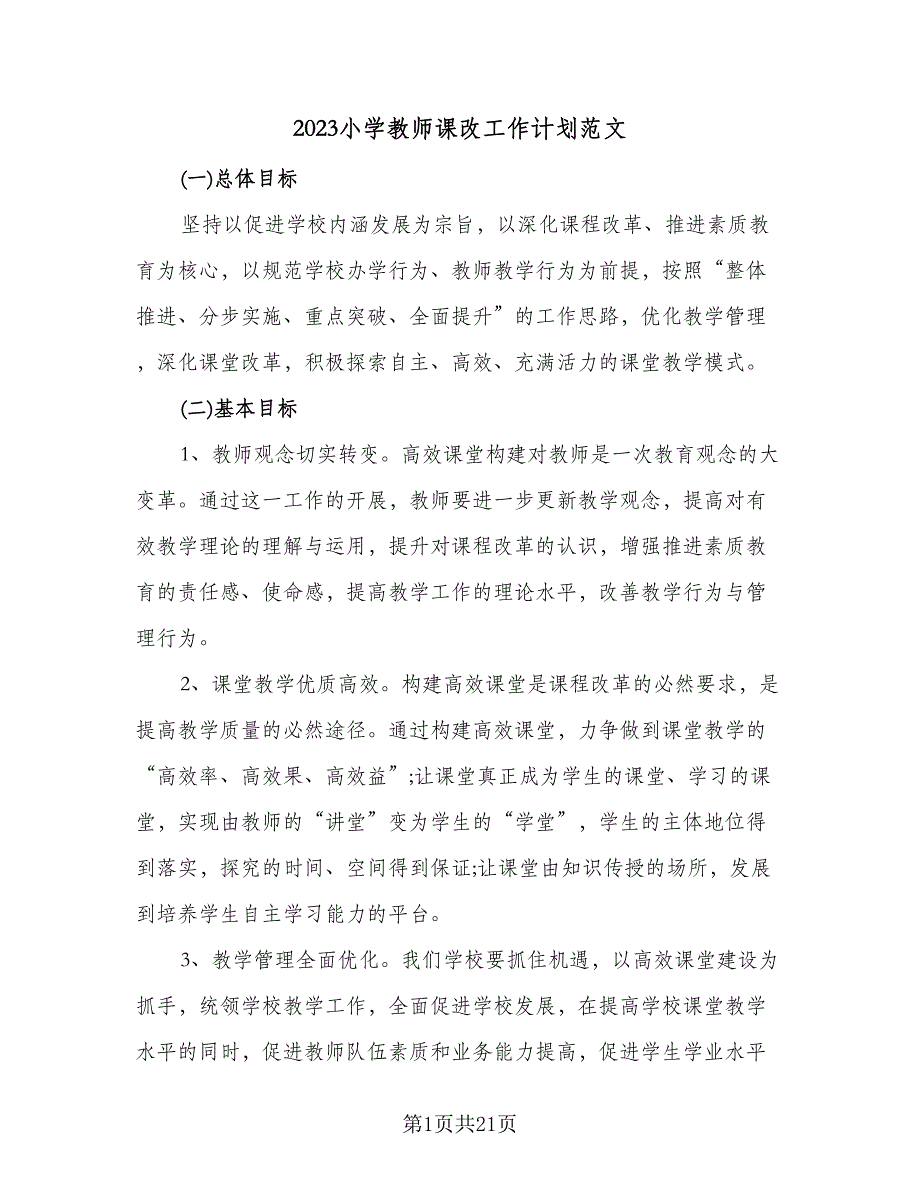 2023小学教师课改工作计划范文
(一)总体目标
坚持以促进学校内涵发展为宗旨，以深化课程改革、推进素质教
育为核心，以规范学校办学行为、教师教学行为为前提，按照“整体
推进、分步实施、重点突破、全面提升”的工作思路，优化教学管理
，深化课堂改革，积极探索自主、高效、充满活力的课堂教学模式。
(二)基本目标
1、教师观念切实转变。高效课堂构建对教师是一次教育观念的大
变革。通过这一工作的开展，教师要进一步更新教学观念，提高对有
效教学理论的理解与运用，提升对课程改革的认识，增强推进素质教
育的责任感、使命感，提高教学工作的理论水平，改善教学行为与管
理行为。
2、课堂教学优质高效。构建高效课堂是课程改革的必然要求，是
提高教学质量的必然途径。通过构建高效课堂，力争做到课堂教学的
“高效率、高效果、高效益”;让课堂真正成为学生的课堂、学习的课
堂，实现由教师的“讲堂”变为学生的“学堂”，学生的主体地位得
到落实，探究的时间、空间得到保证;让课堂由知识传授的场所，发展
到培养学生自主学习能力的平台。
3、教学管理全面优化。我们学校要抓住机遇，以高效课堂建设为
抓手，统领学校教学工作，全面促进学校发展，在提高学校课堂教学
水平的同时，促进教师队伍素质和业务能力提高，促进学生学业水平
第1页共21页